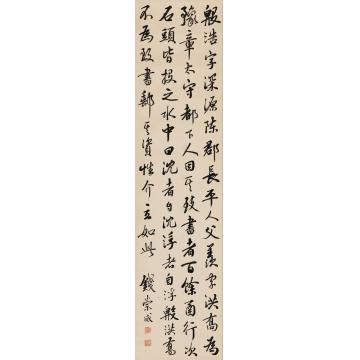 殷浩字深源陳郡長平人父羨字洪喬為
豫章太守都下人因其致書者百餘函行次
石頭皆投之水中曰沈者自沈浮者自浮殷洪喬
不為致書郵其資性介立如此 錢崇威